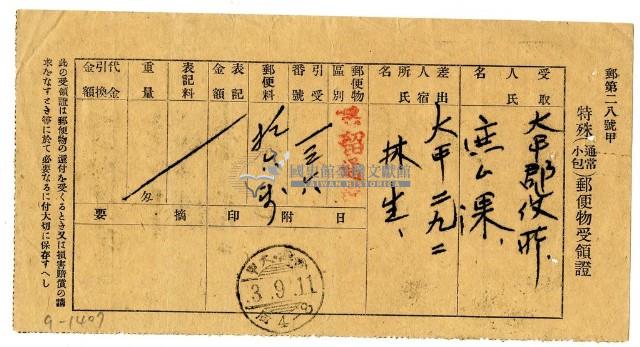 郵第二八號甲
特殊(通常小包)郵便物受領證
受取人氏名
大甲郡役所
庶ム課、
差出人宿所氏名
大甲二九二
林生、
郵便物區別
書留通常
引受番號
一三八
郵便料
表記金額
表記料
重量
匁
代金引換金額
日附印
摘要
3.9.11
此の受領證は郵便物の還付を受くるとき又は損害賠償の請
求をなすとき等に於て必要なるに付大切に保存すへし
9-1407
國史館臺灣文獻館
TAIWAN HISTORICA